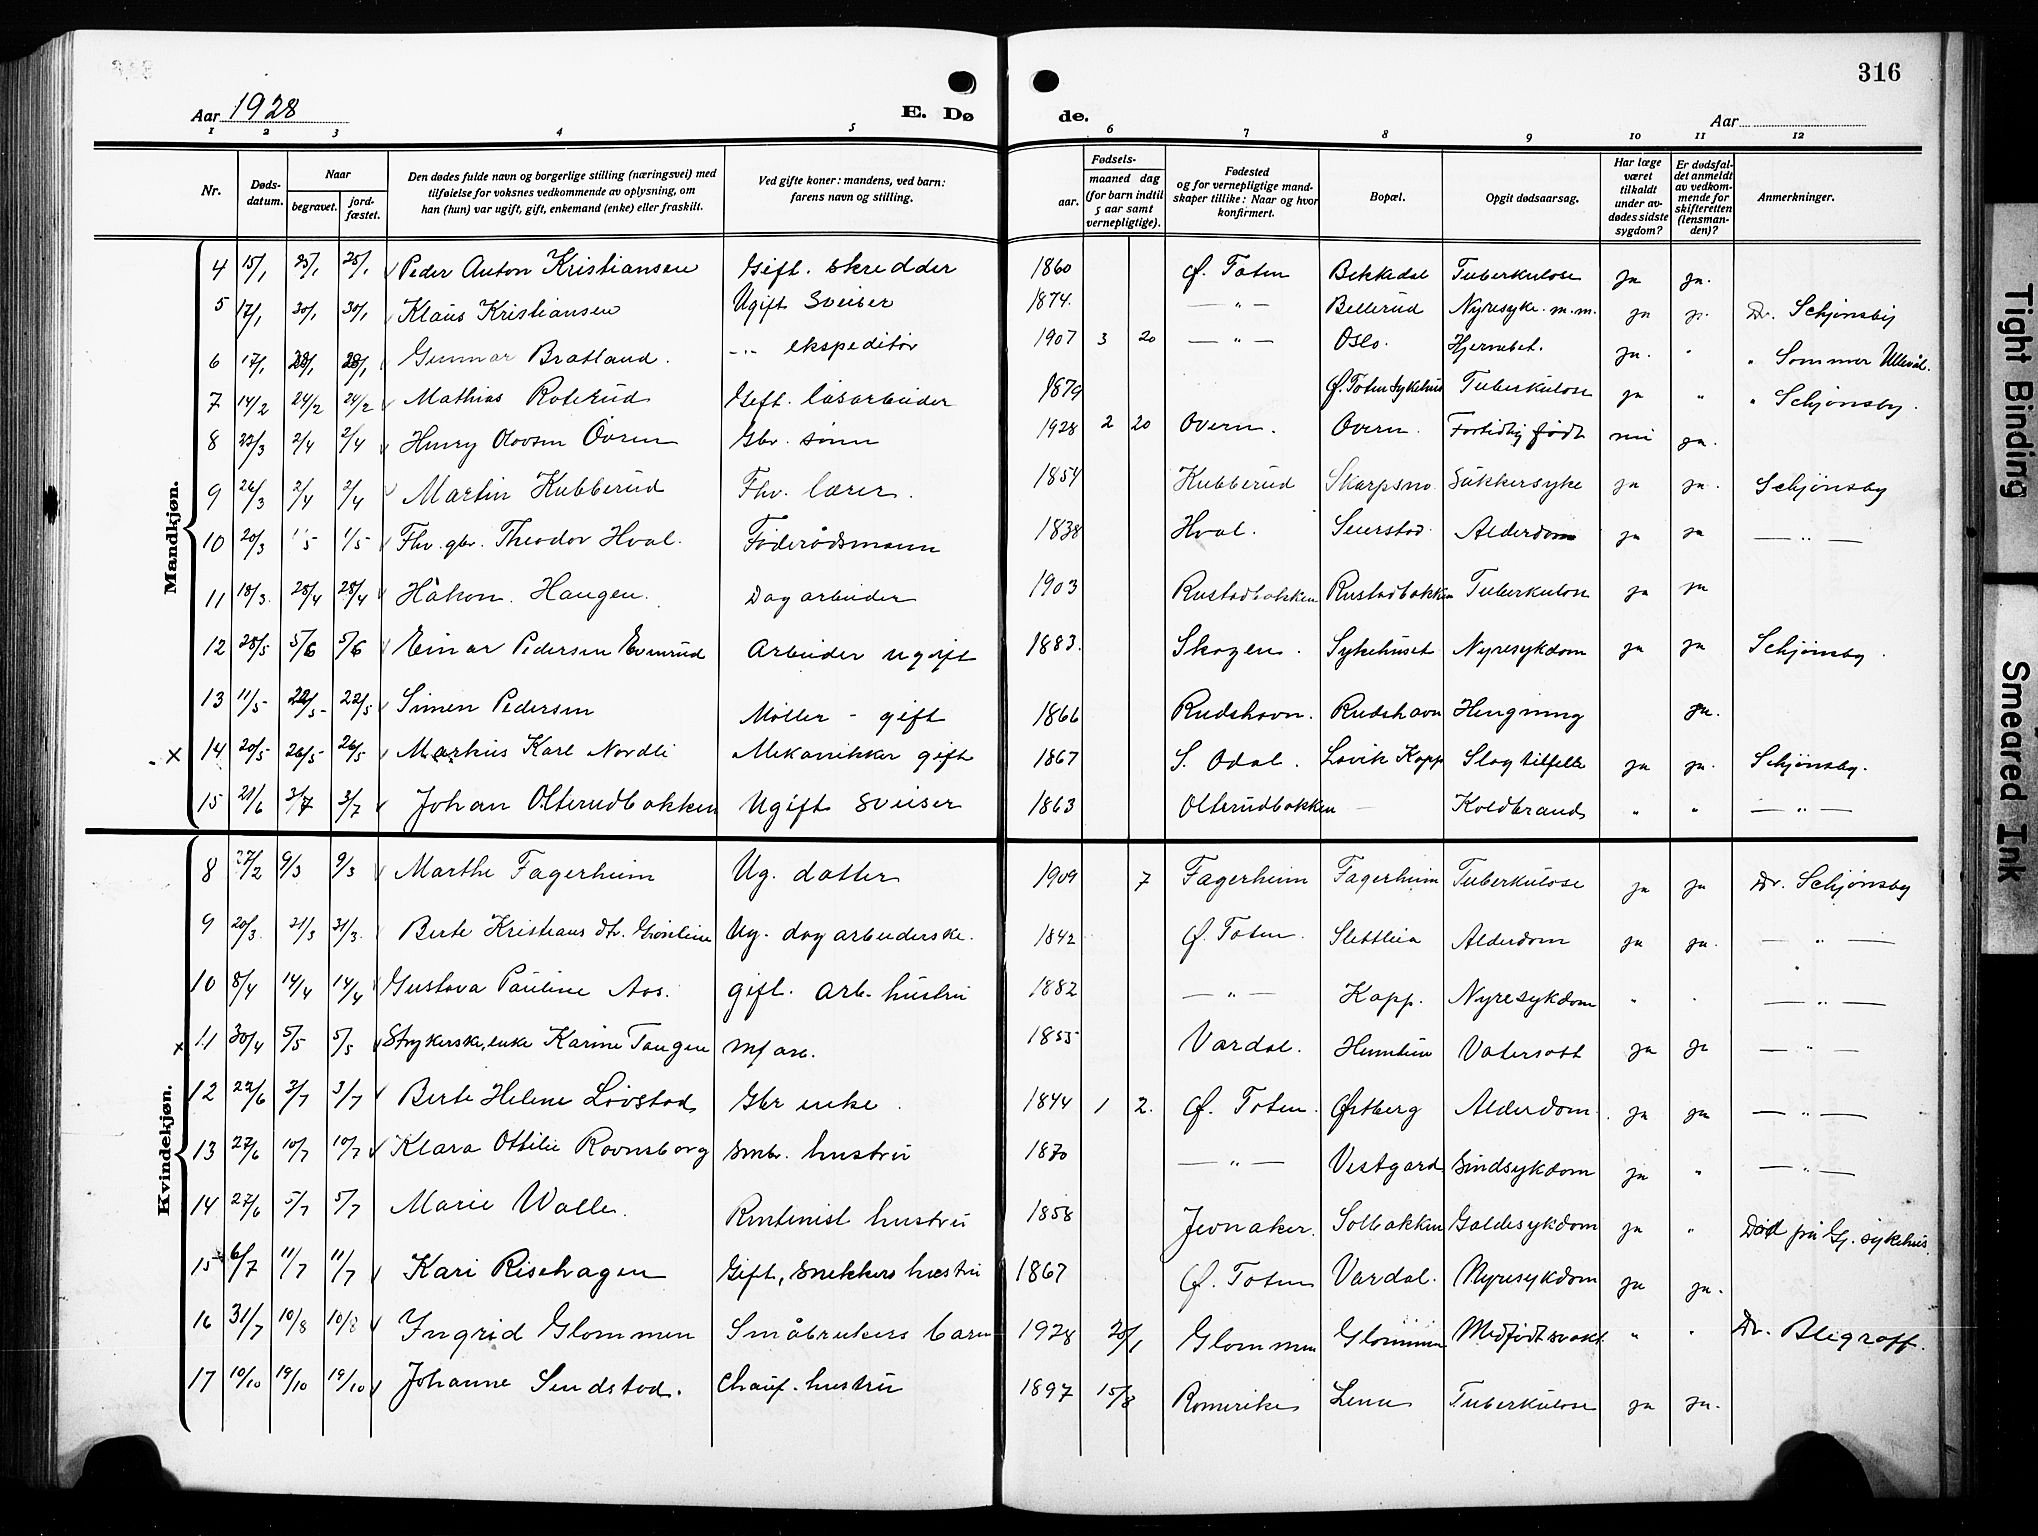 316
Aar 1928
E. Dø de.
Aar
1 2 3 4 5 6 7 8 9 10 11 12
Nr.
Døds-datum.
Naar
begravet.
jord-fæstet.
Den dødes fulde navn og borgerlige stilling (næringsvei) med
tilføielse for voksnes vedkommende av oplysning, om
han (hun) var ugift, gift, enkemand (enke) eller fraskilt.
Ved gifte koner: mandens, ved barn:
farens navn og stilling.
Fødsels-
aar. maaned dag
(for barn indtil
5 aar samt
vernepligtige).
Fødested
og for vernepligtige mand-
skaper tillike: Naar og hvor
konfirmert.
Bopæl.
Opgit dødsaarsag.
Har læge
været
tilkaldt
under av-
dødes sidste
sygdom?
Er dødsfal-
det anmeldt
av vedkom-
mende for
skifteretten
(lensman-
den)?
Anmerkninger.
Mandkjøn.
4 15/1 25/1 25/1 Peder Anton Kristiansen Gift. skredder 1860 Ø. Toten Bekkedal Tuberkulose ja ja.
5 17/1 30/1 30/1 Klaus Kristiansen Ugift Sveiser 1874. — " — Bellerud Nyresyke m.m. ja ja. Dr. Schjønsby
6 17/1 28/1 28/1 Gunnar Bratland. -"- ekspeditør 1907 3 20 — " — Oslo. Hjernebet. ja. " " Sommer Ullevål.
7 14/2 24/2 24/2 Mathias Roterud Gift. løsarbeider 1879 Ø. Toten Sykehus Tuberkulose ja " " Schjønsby.
8 22/3 2/4 2/4 Henry Olovsen Øvren Gbr. sønn 1928 2 20 Øvern. Øvern. Fortidlig født nei ja.
9 26/3 2/4 2/4 Martin Kubberud Fhv. lærer. 1854 Kubberud Skarpsno Sukkersyke ja ja. Schjønsby
10 20/3 1/5 1/5 Fhv. gbr. Theodor Hval. Føderådsmann 1838 Hval. Seierstad. Alderdom ja ja — " —
11 18/3. 28/4 28/4 Håkon. Haugen. Dagarbeider 1903 Rustadbakken Rustadbakken Tuberkulose ja ja
12 28/5 5/6 5/6 Einar Pedersen Evenrud Arbeider ugift 1883. Skogen. Sykehuset Nyresykdom ja ja Schjønsby.
13 11/5 22/5 22/5 Simen Pedersen Møller - gift 1866 Rudshavn. Rudshavn Hengning ja.
x 14 20/5 26/5 26/5 Markus Karl Nordli Mekanikker gift 1867 S. Odal. Lovik Kapp Slagtilfelle ja ja. Schjønsby.
15 21/6 3/7 3/7 Johan Olterudbakken Ugift sveiser 1863 Olterudbakken — Koldbrand " " — " —
Kvindekjøn.
8 27/2 9/3 9/3 Marthe Fagerheim Ug. datter 1909 7 Fagerheim Fagerheim Tuberkulose ja ja Dr. Schjønsby
9 20/3. 31/3 31/3. Berte Kristians dtr. Ug. dagarbeiderske. 1842 Ø. Toten. Slettleia Alderdom ja ja. — " —
10 8/4 14/4 14/4 Gustava Pauline Aas. gift. arb. hustru 1882 — " — Kapp. Nyresykdom " " — " —
x 11 30/4 5/5 5/5 Strykerske, enke Karine Tangen 1855 Vardal. Vatersott ja ja — " —
12 22/6 3/7 3/7 Berte Helene Løvstad Gbr enke. 1844 1 2. Ø. Toten. Østberg Alderdom. ja ja — " —
13 27/6 10/7 10/7 Klara Ottilie Ravnsborg Smbr. hustru 1870 — " — Vestgard Sindsykdom ja " — " —
14 27/6 5/7 5/7 Marie Walle. Rentenist hustru 1858 Jevnaker. Solbakken Galdesykdom ja " Død på Gj. sykehus.
15 6/7 11/7 11/7 Kari Risehagen Gift, snekkers hustru 1867 Ø. Toten Vardal. Nyresykdom ja ja.
16 31/7 10/8 10/8 Ingrid Glommen Småbrukers barn 1928 20/1 Glommen Glommen Medfødt svakh. " " Dr. Bligraff.
17 10/10 19/10 19/10 Johanne Sendstad. Chauf. hustru 1897 15/8 Romerike Lena Tuberkulose ja ja.
Tight Binding
Smeared Ink